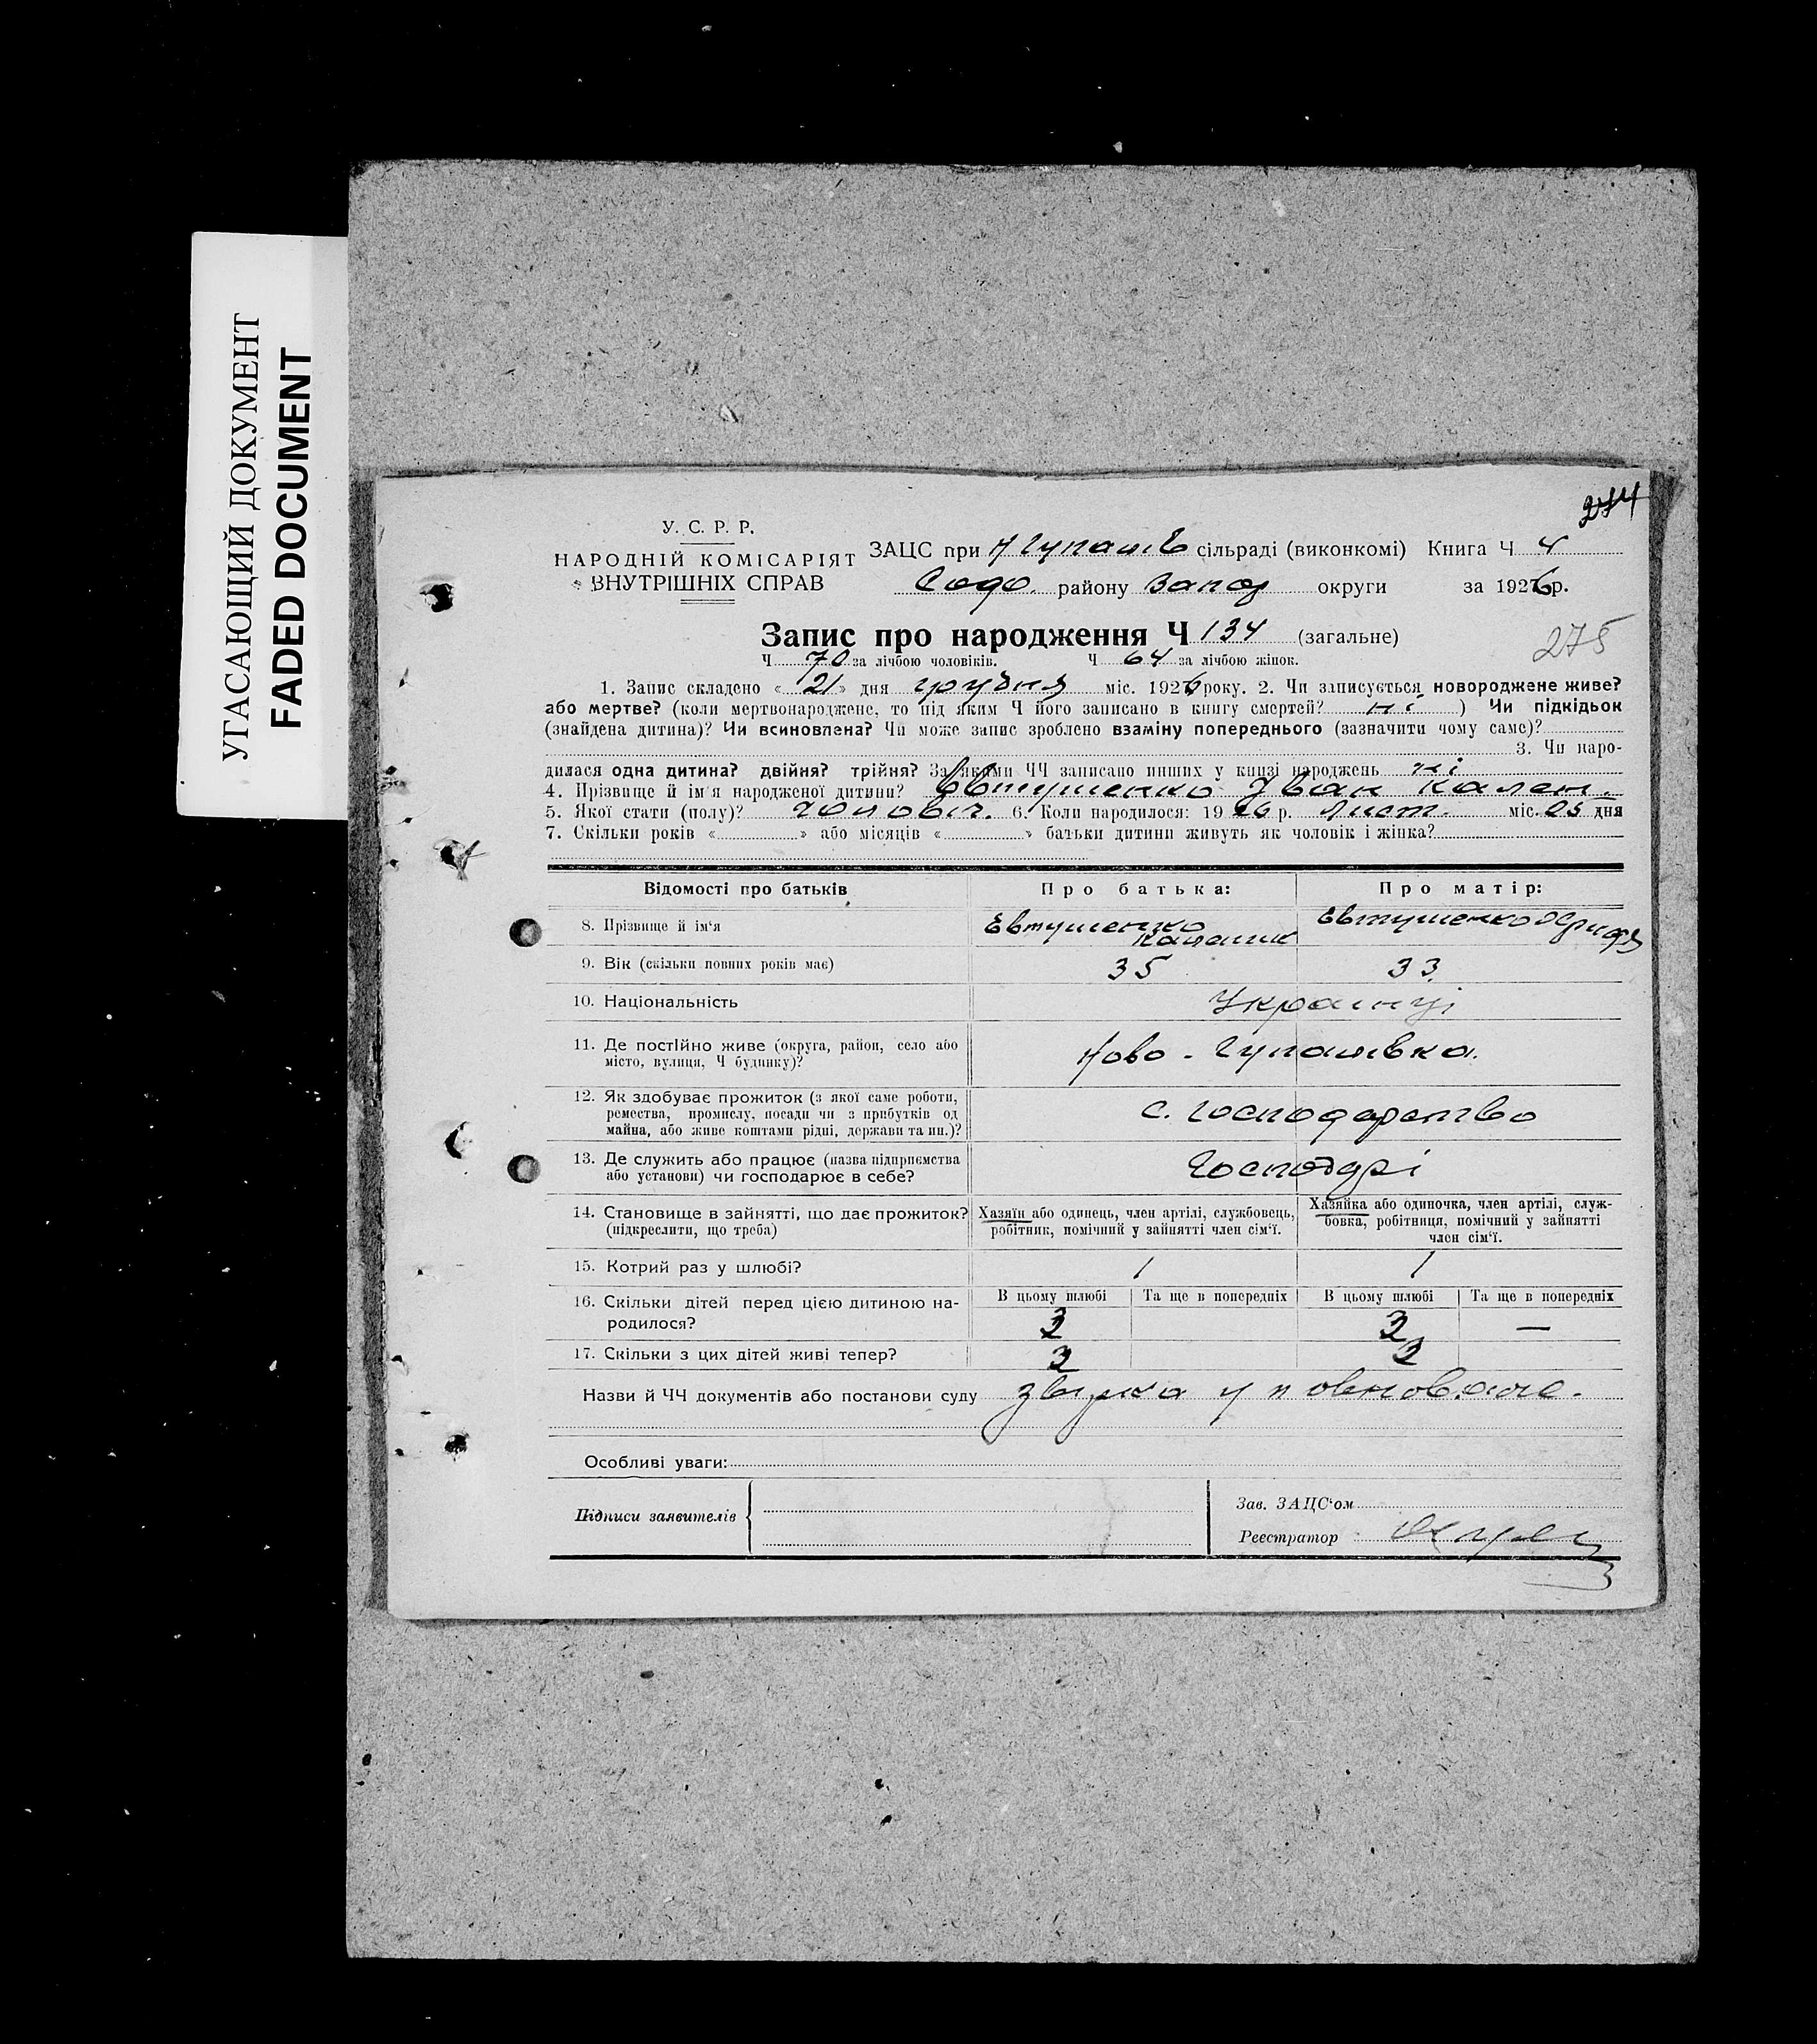 УГАСАЮЩИЙ ДОКУМЕНТ
FADED DOCUMENT
274
У. С. Р. Р.
НАРОДНІЙ КОМІСАРІЯТ
ВНУТРІШНІХ СПРАВ
ЗАЦС при Н Гупалів сільраді (виконкомі) Книга Ч 4
Софо. району Запор округи за 1926 р.
Запис про народження Ч 134 (загальне)
275
Ч 70 за лічбою чоловіків. Ч 64 за лічбою жінок.
1. Запис складено « 21 » дня грудня міс. 1926 року. 2. Чи записується новороджене живе?
або мертве? (коли мертвонароджене, то під яким Ч його записано в книгу смертей? ні ) Чи підкідьок
(знайдена дитина)? Чи всиновлена? Чи може запис зроблено взаміну попереднього (зазначити чому саме)?
3. Чи наро-
дилася одна дитина? двійня? трійня? За якими ЧЧ записано инших у книзі народжень ні
4. Прізвище й ім'я народженої дитини? Евтушенко Іван Кален.
5. Якої стати (полу)? чоловіч. 6. Коли народилося: 1926 р. лист. міс. 25 дня
7. Скільки років « » або місяців « » батьки дитини живуть як чоловік і жінка?
Відомості про батьків Про батька: Про матір:
8. Прізвище й ім'я Евтушенко Каленик Евтушенко
9. Вік (скільки повних років має) 35 33
10. Національність Украінці
11. Де постійно живе (округа, район, село або
місто, вулиця, Ч будинку)? Ново-Гупалівка.
12. Як здобуває прожиток (з якої саме роботи,
ремества, промислу, посади чи з прибутків од
майна, або живе коштами рідні, держави та ин.)? с. господарство
13. Де служить або працює (назва підприємства
або установи) чи господарює в себе? Господарі
14. Становище в зайнятті, що дає прожиток?
(підкреслити, що треба)
Хазяїн або одинець, член артілі, службовець,
робітник, помічний у зайнятті член сім'ї.
Хазяйка або одиночка, член артілі, служ-
бовка, робітниця, помічний у зайнятті
член сім'ї.
15. Котрий раз у шлюбі? 1 1
16. Скільки дітей перед цією дитиною на-
родилося?
В цьому шлюбі Та ще в попередніх В цьому шлюбі Та ще в попередніх
3 3 —
17. Скільки з цих дітей живі тепер? 3 3
Назви й ЧЧ документів або постанови суду
Особливі уваги:
Підписи заявителів
Зав. ЗАЦС'ом
Реєстратор